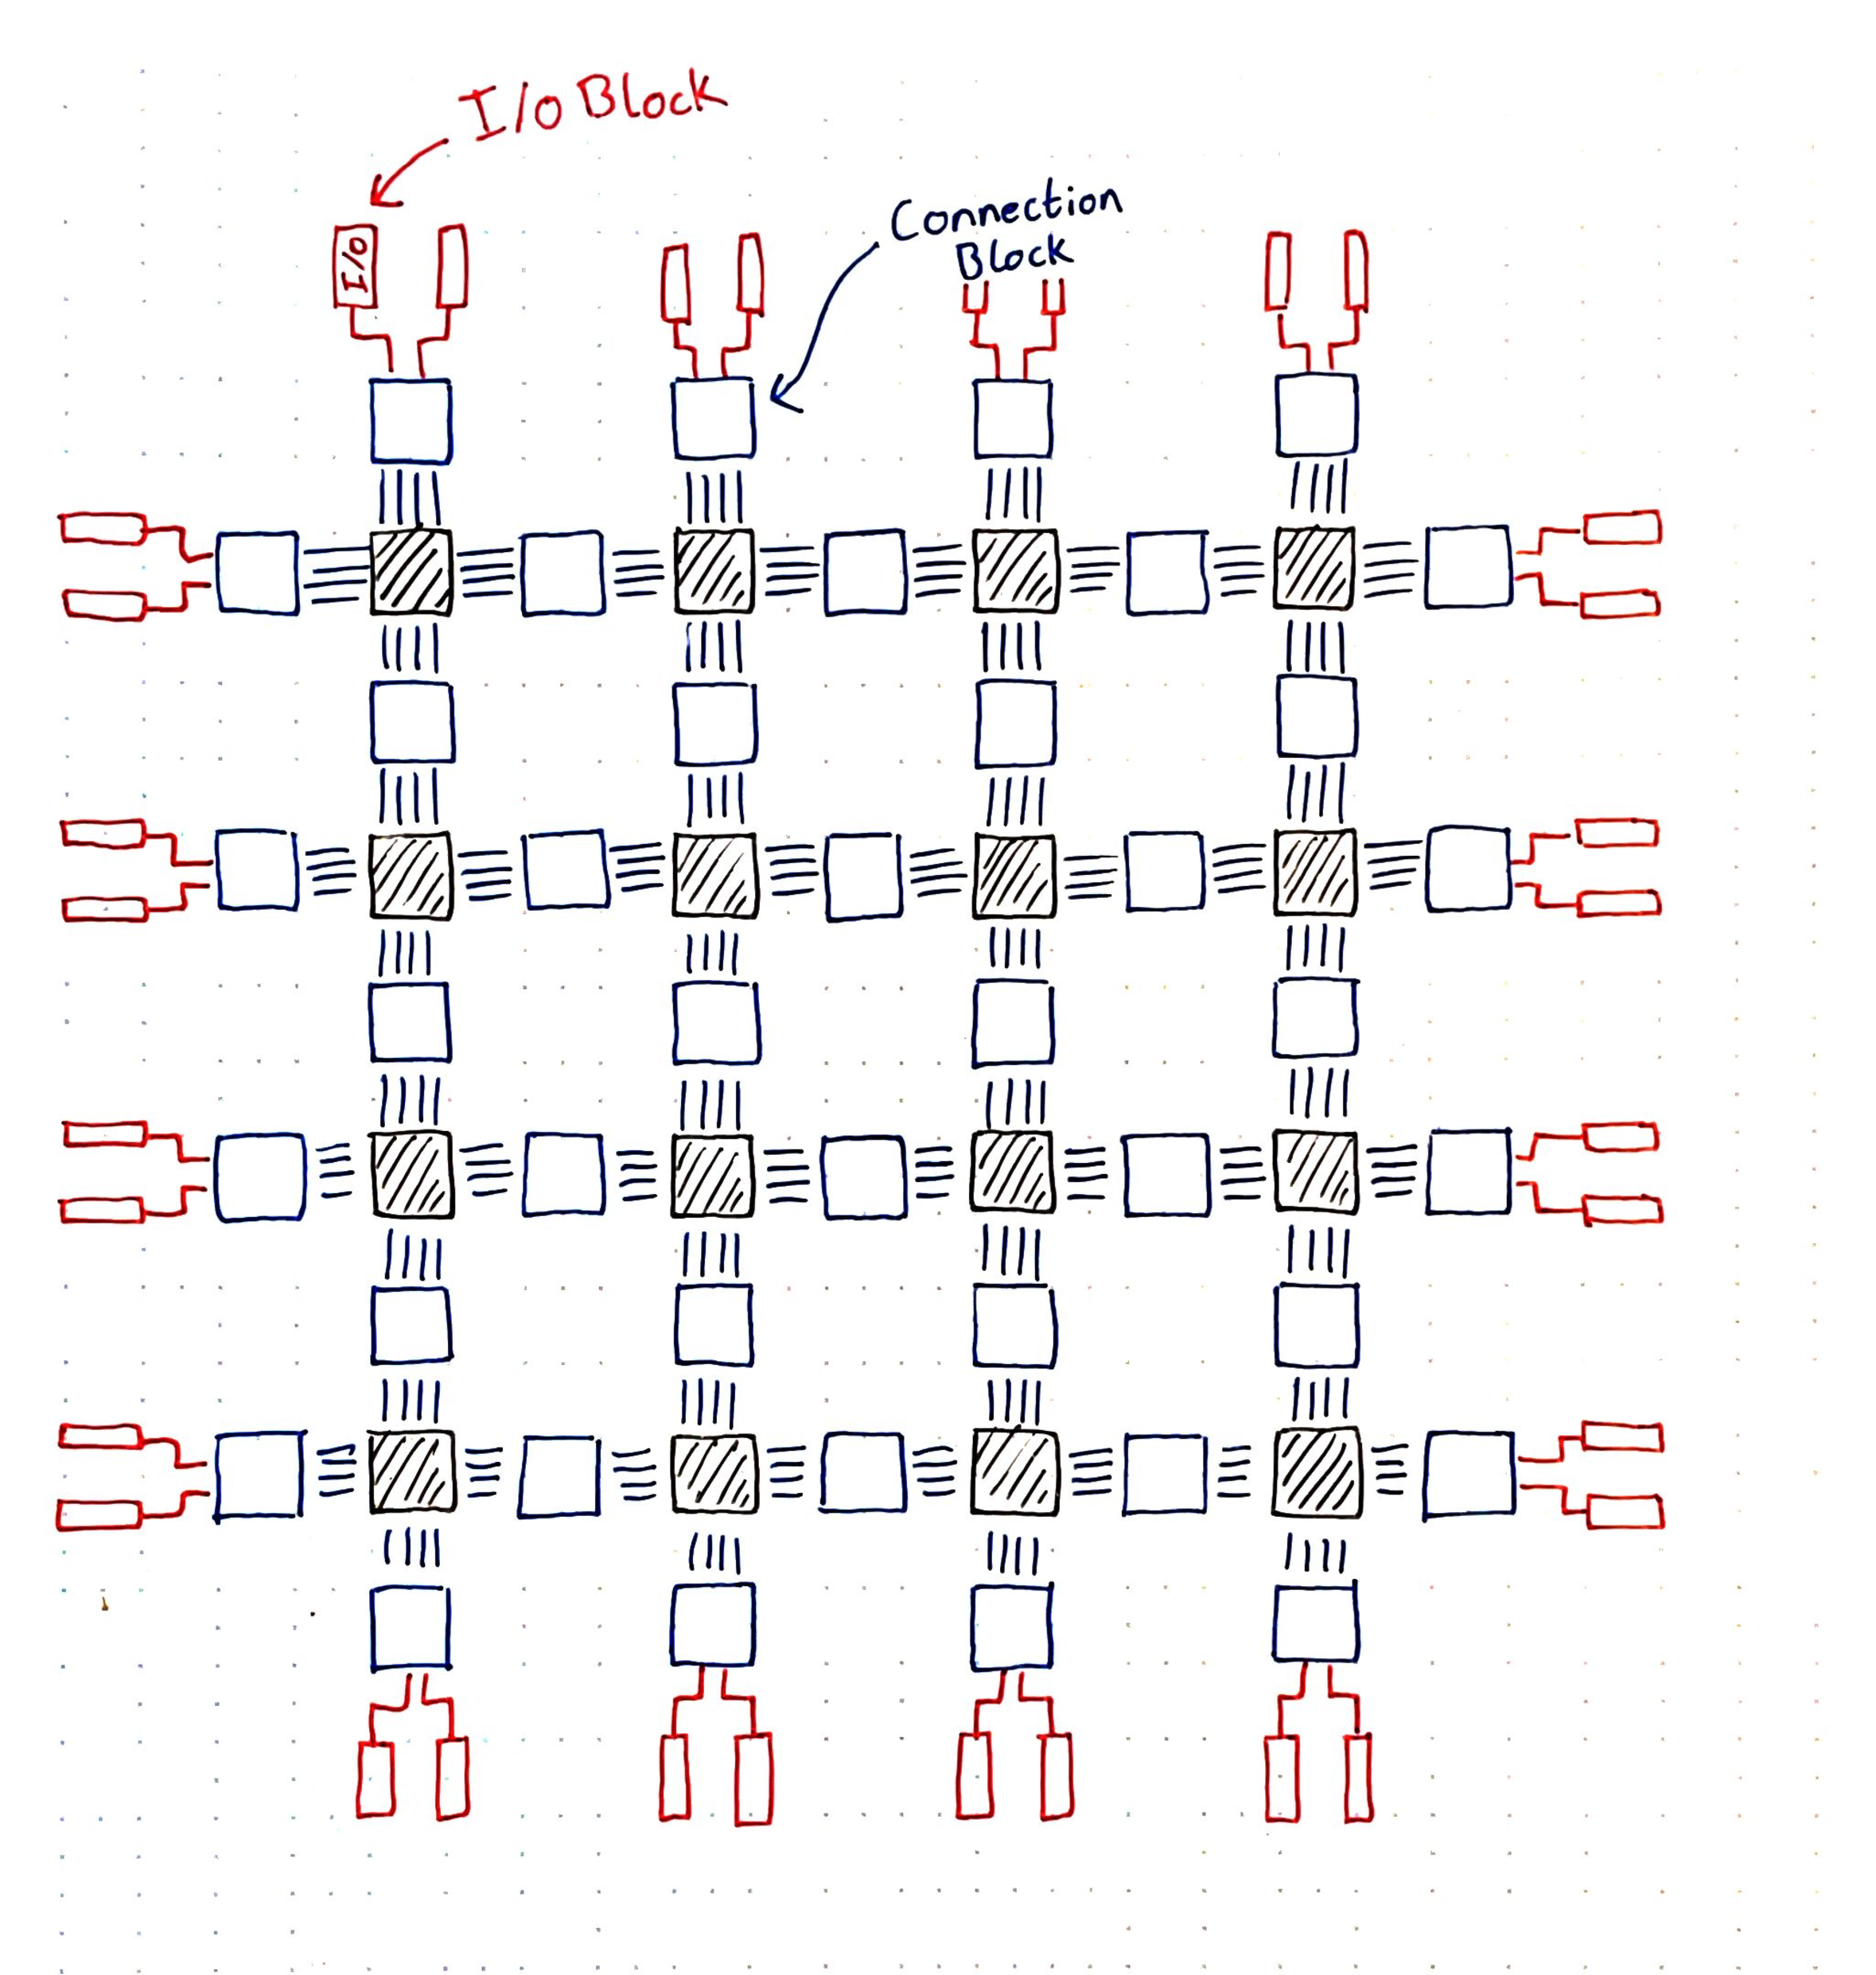 I/O Block
Connection
Block
I/O